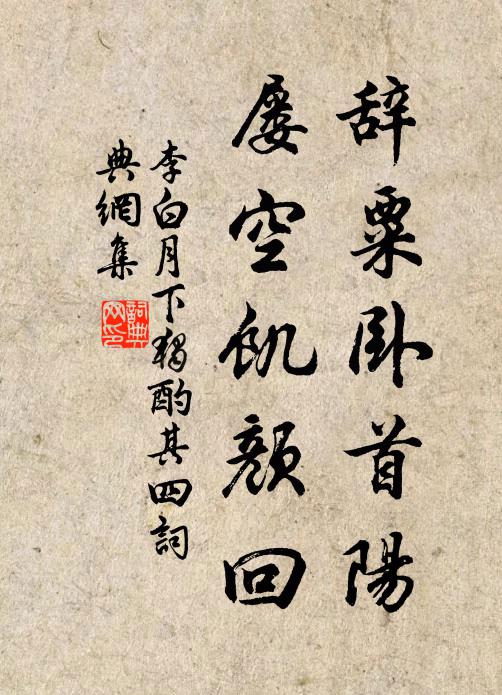 辞粟卧首陽
屡空飢顔回
李白月下獨酌其四詞
典網集
詞典
网印